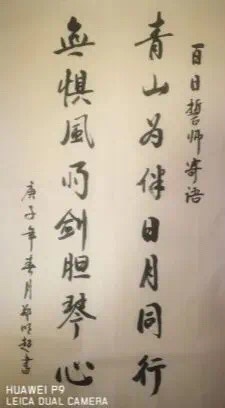 百日誓师寄语
青山为伴日月同行
無惧風雨剑胆琴心
庚子年春月郑明超書
HUAWEI P9
LEICA DUAL CAMERA